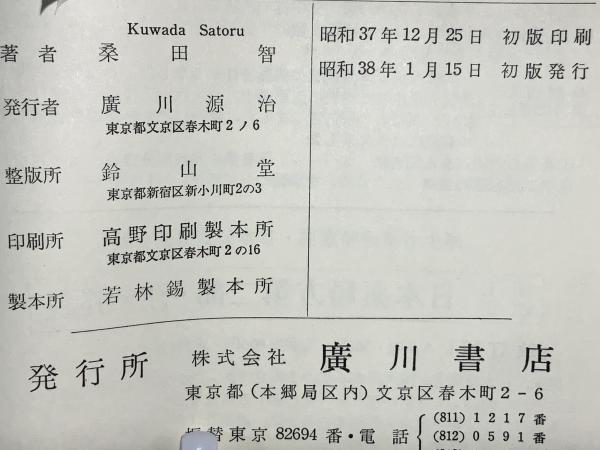 Kuwada Satoru
著者 桑田智
発行者 廣川源治
東京都文京区春木町2ノ6
整版所 鈴山堂
東京都新宿区新小川町2の3
印刷所 高野印刷製本所
東京都文京区春木町2の16
製本所 若林錫製本所
昭和37年12月25日 初版印刷
昭和38年1月15日 初版発行
発行所 株式会社 廣川書店
東京都(本郷局区内)文京区春木町2-6
替東京82694番・電話
(811)1217番
(812)0591番